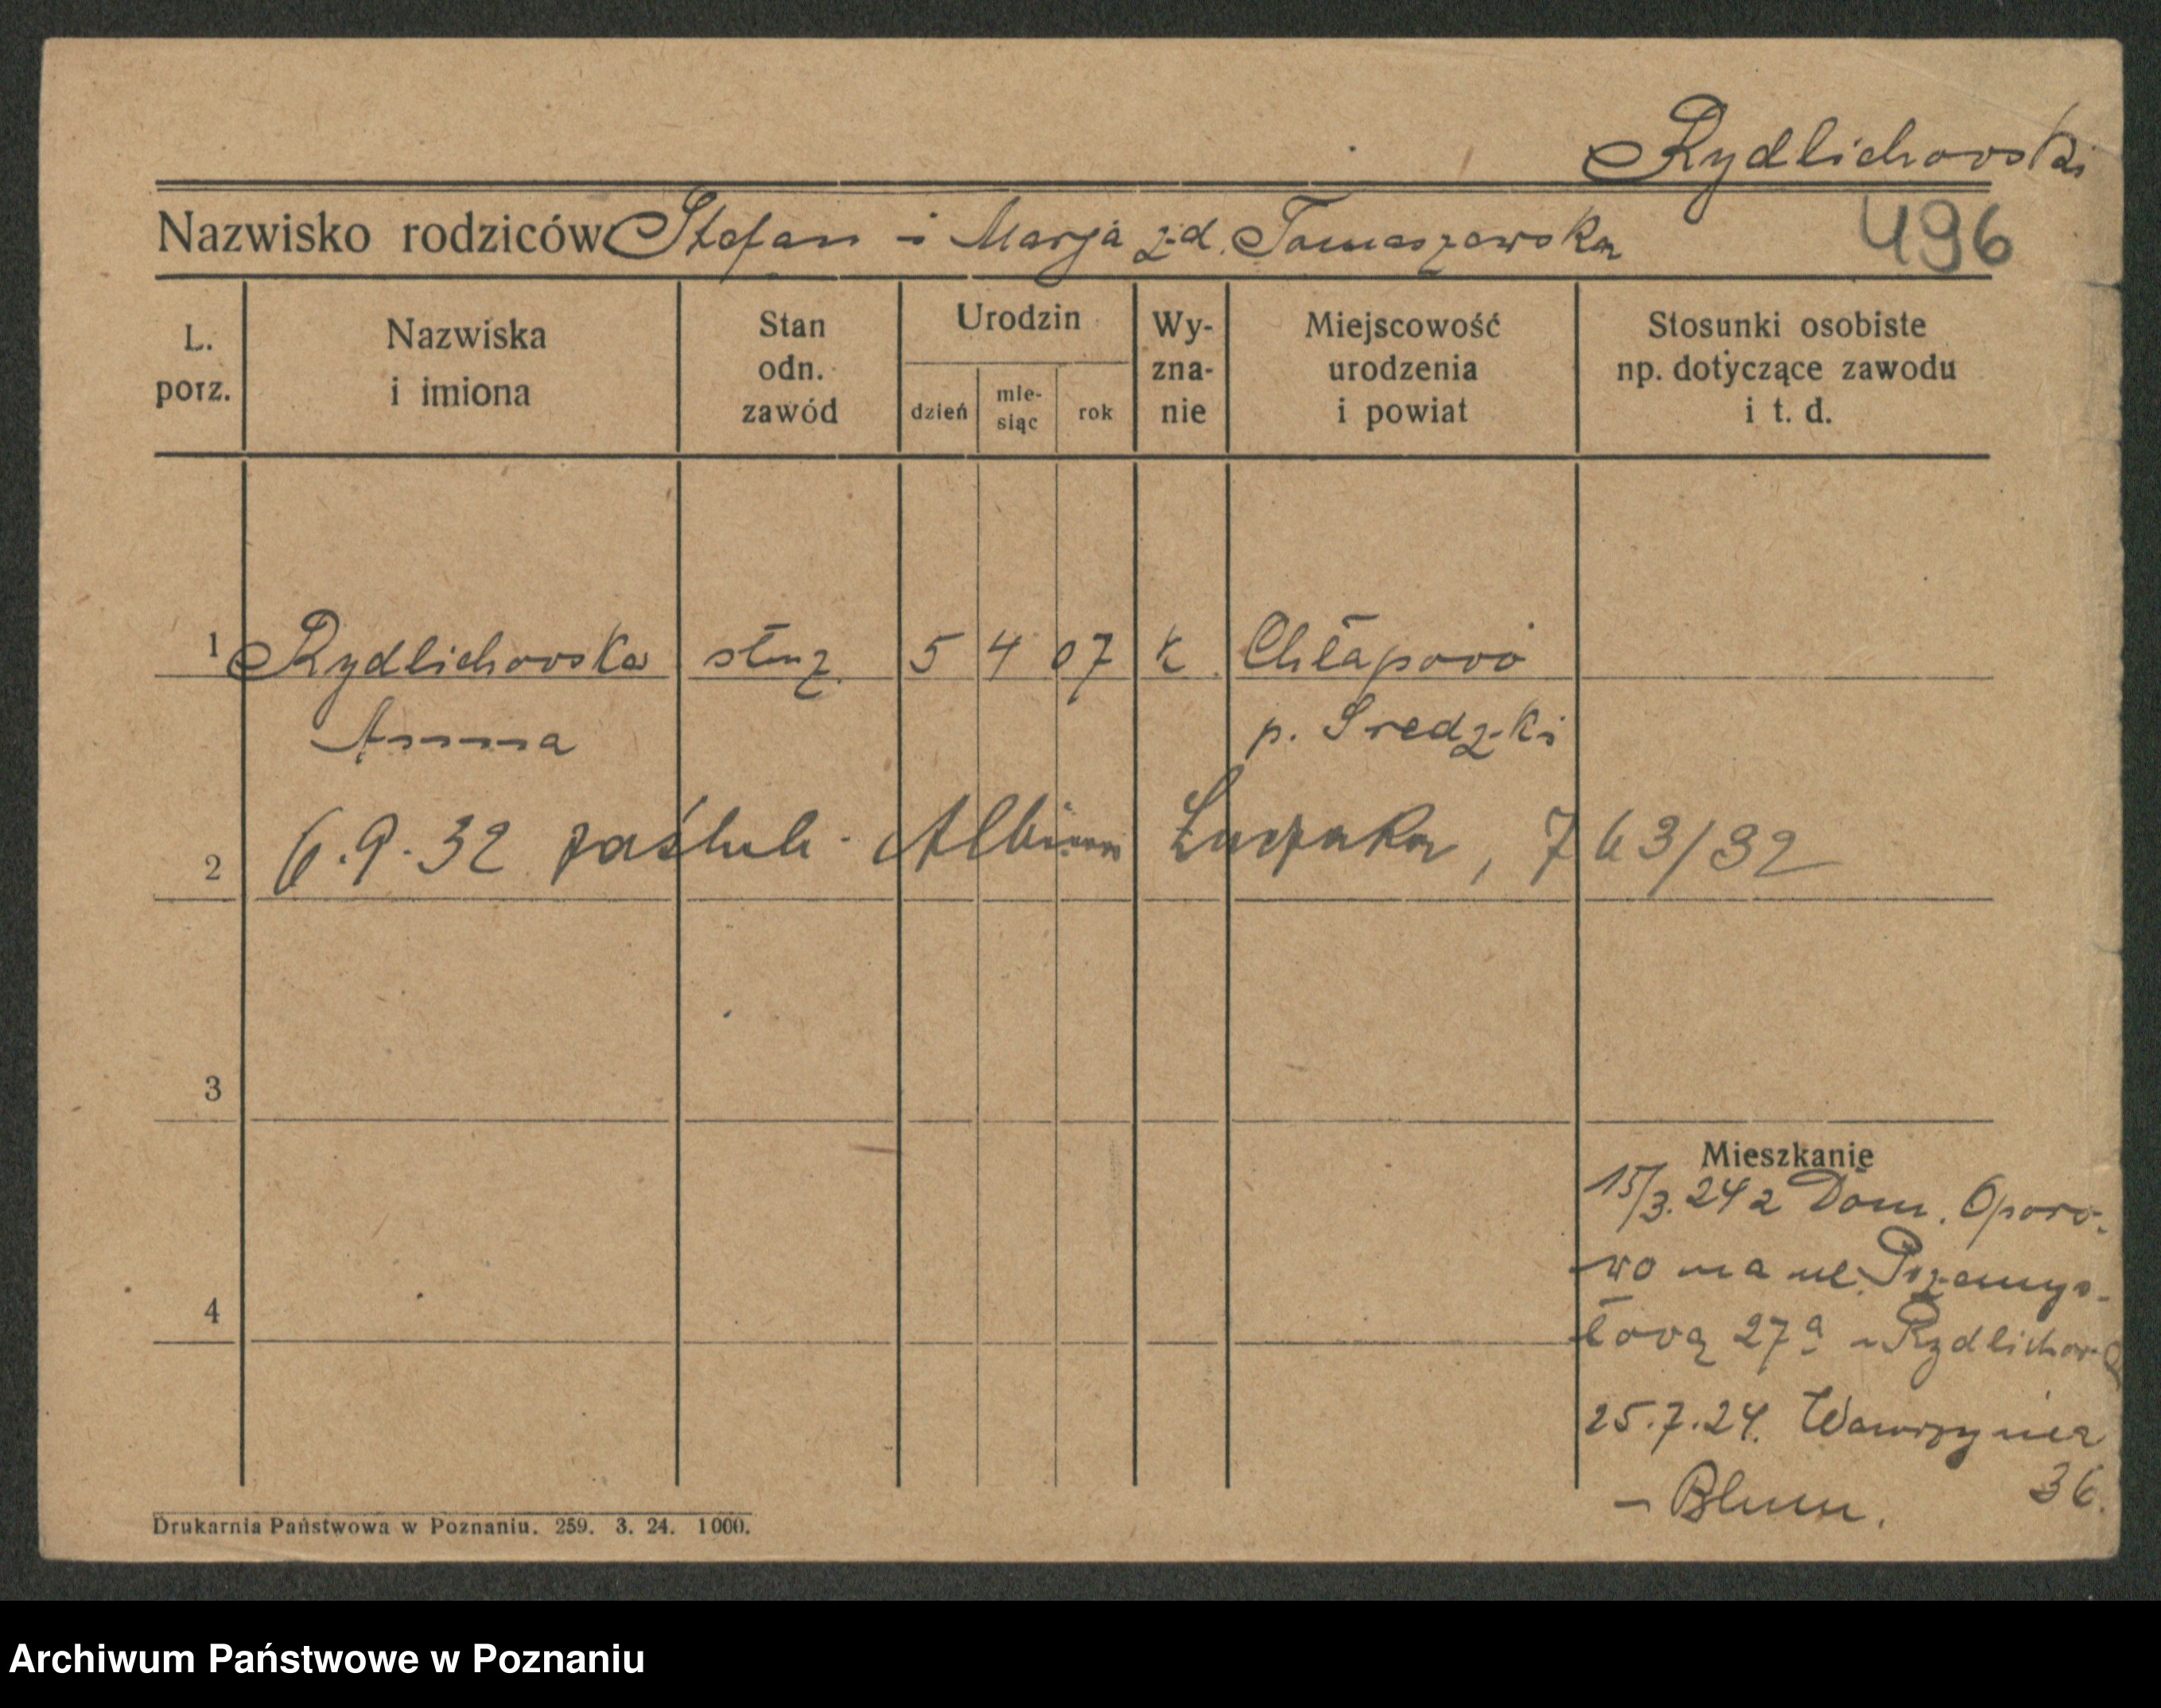 Rydlichowski
Nazwisko rodziców Stefan i Marja z d. Tomaszewska
496
L. porz.
Nazwiska i imiona
Stan odn. zawód
Urodzin
dzień
mie-siąc
rok
Wy-zna-nie
Miejscowość urodzenia i powiat
Stosunki osobiste np. dotyczące zawodu i t. d.
1 Rydlichowska służ. 5 4 07 k. Chłapowo
Anna p. Sredzki
2 6.9.32 zaślub. Albina Łuczaka, 763/32
3
Mieszkanie
15/3.24 z Dom. Oporo-
wo na ul. Przemys-
4
łową 27a
25.7.24. Wawrzyńca
36.
– Blum.
Drukarnia Państwowa w Poznaniu. 259. 3. 24. 1000.
Archiwum Państwowe w Poznaniu